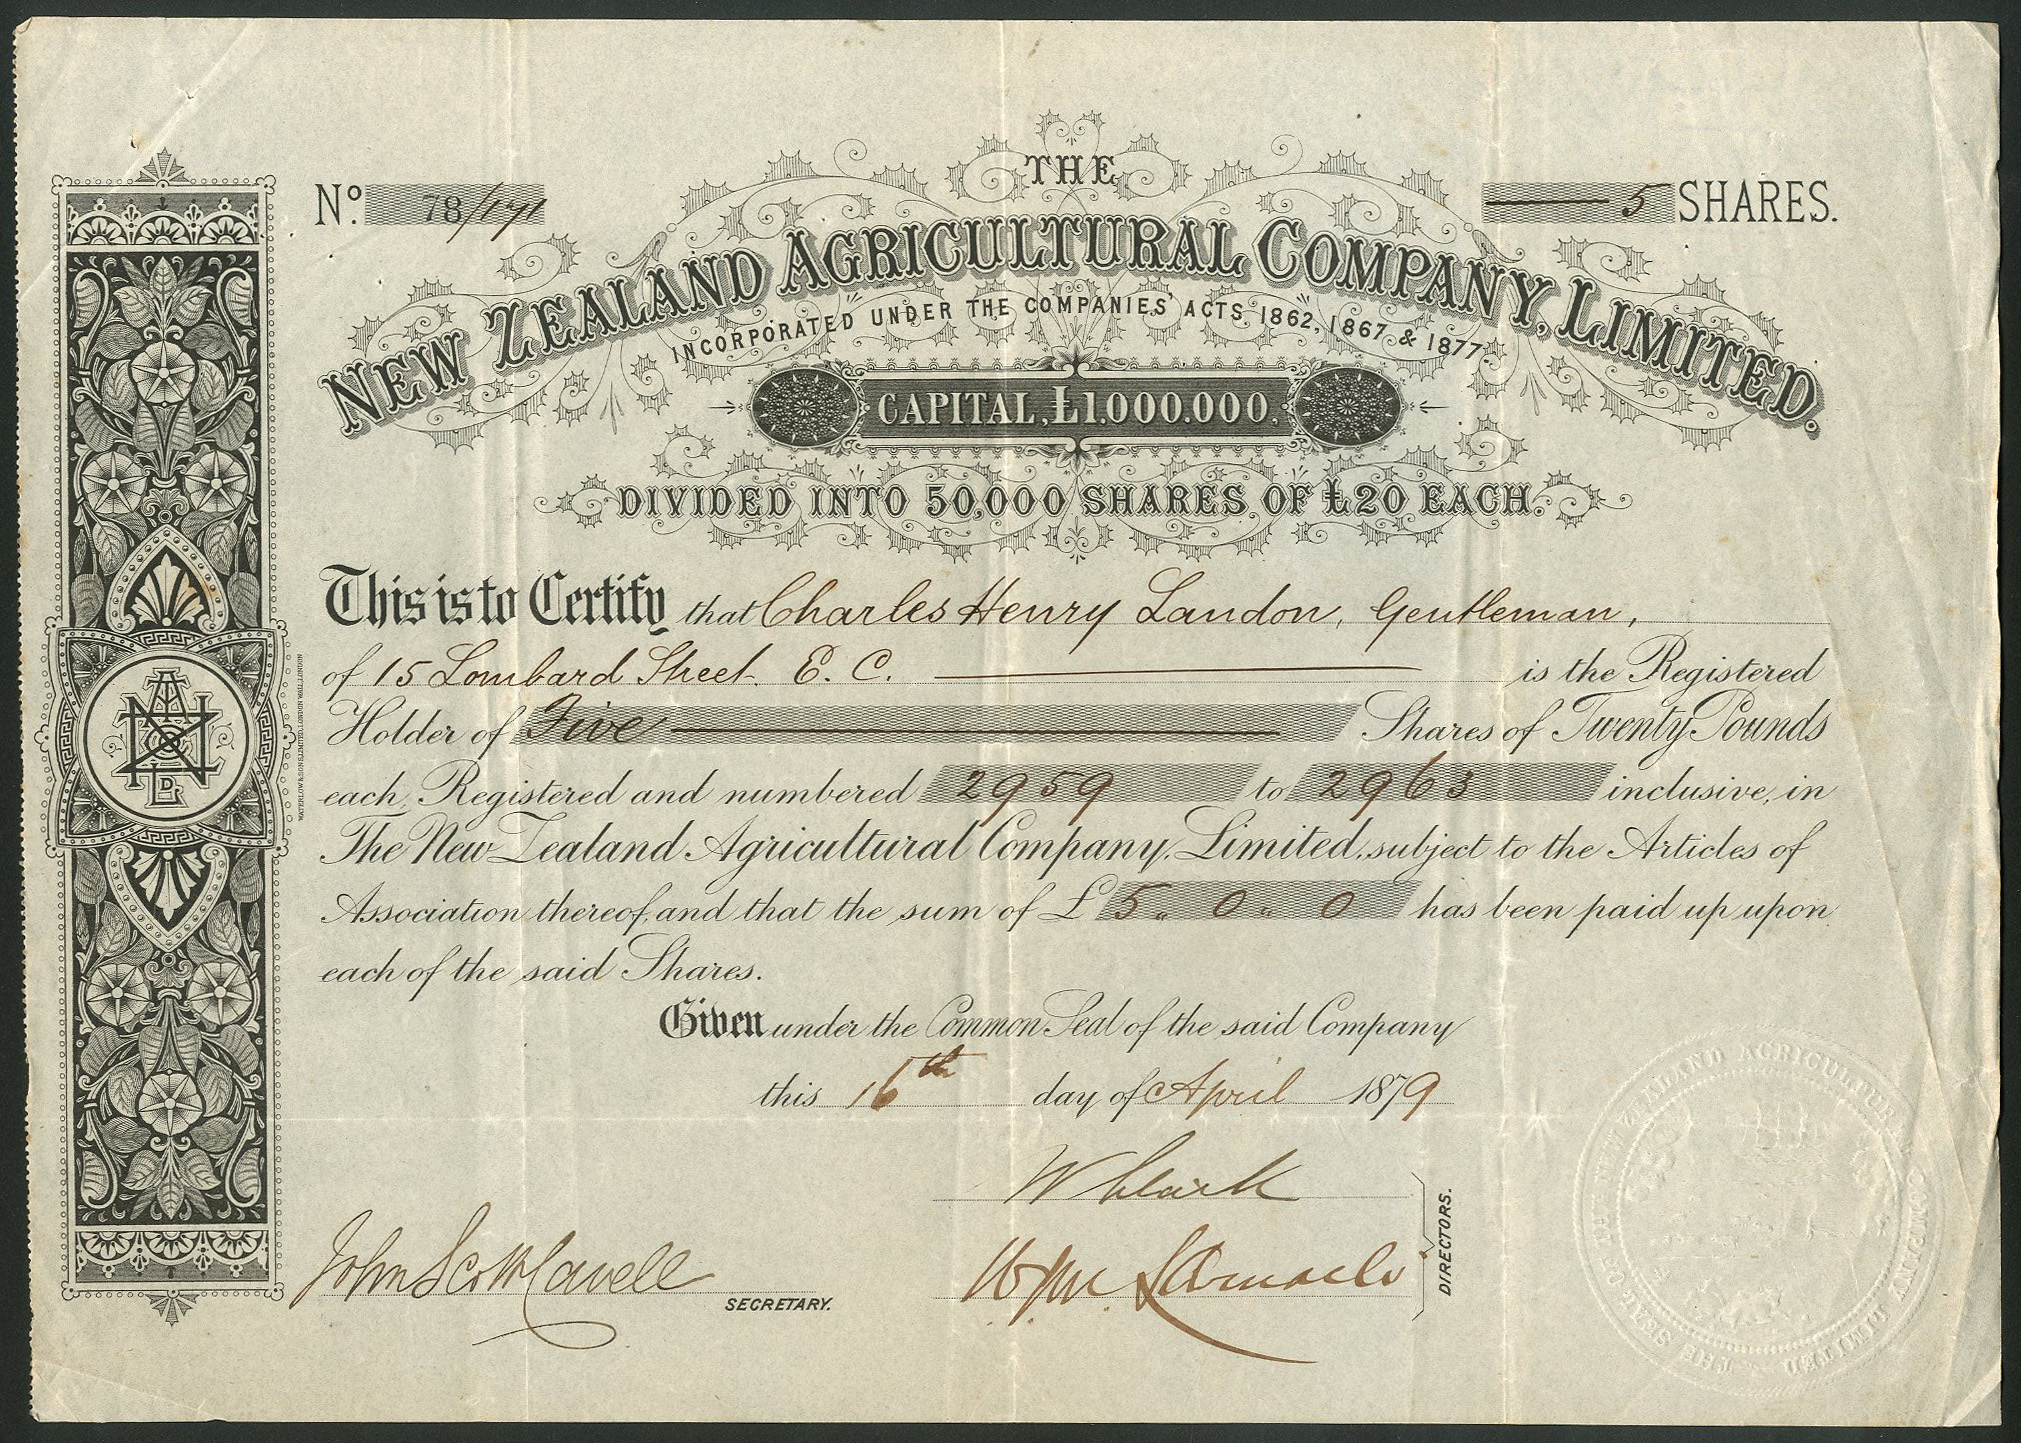 No. 78/171
5 SHARES.
THE
NEW ZEALAND AGRICULTURAL COMPANY, LIMITED.
INCORPORATED UNDER THE COMPANIES' ACTS, 1862, 1867, & 1877.
CAPITAL, £1.000.000,
DIVIDED INTO 50,000 SHARES OF £20 EACH.
This is to Certify that Charles Henry Landon, Gentleman,
of 15 Lombard Street. E. C. is the Registered
Holder of Five Shares of Twenty Pounds
each, Registered and numbered 2959 to 2963 inclusive, in
The New Zealand Agricultural Company, Limited, subject to the Articles of
Association thereof, and that the sum of £ 5 " 0 " 0 has been paid up upon
each of the said Shares.
Given under the Common Seal of the said Company
this 16th day of April 1879
W Clark
John Scott Cavell
SECRETARY.
DIRECTORS.
WATERLOW & SONS LIMITED, LONDON WALL, LONDON
THE SEAL OF THE NEW ZEALAND AGRICULTURAL COMPANY LIMITED